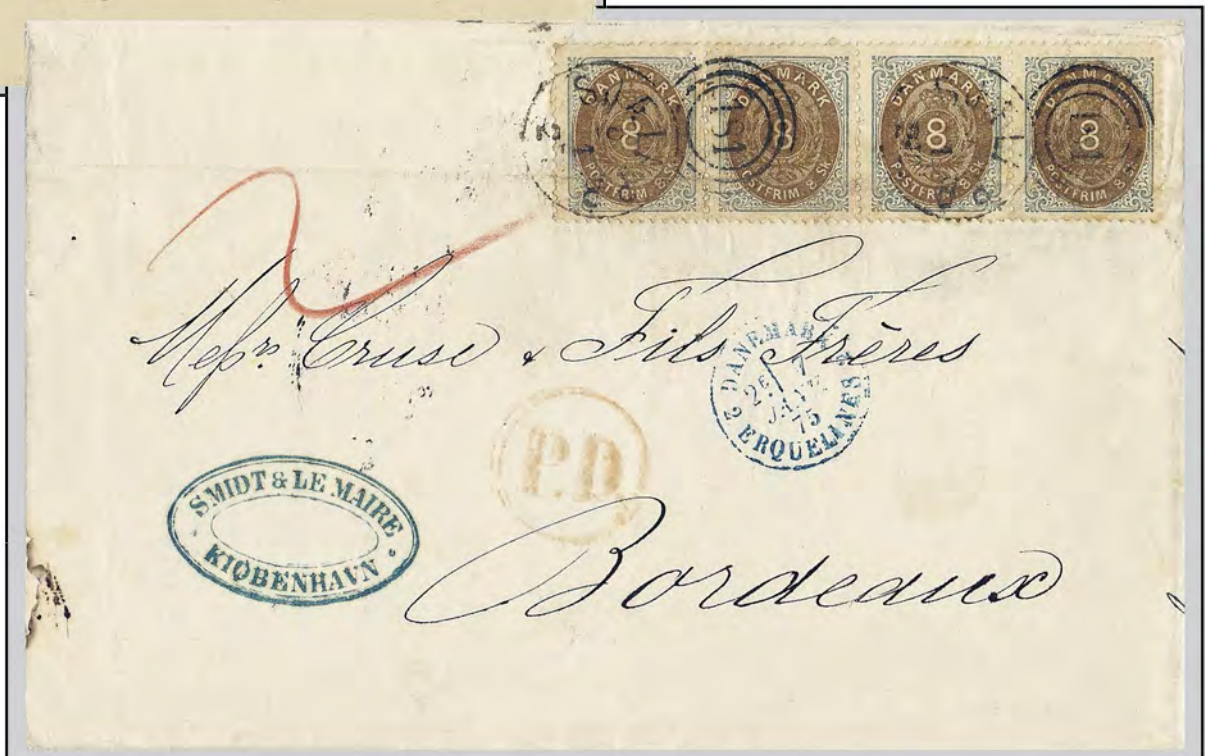 DANMARK 8 POSTFRIM. 8 SK.
DANMARK 8 POSTFRIM. 8 SK.
DANMARK 8 POSTFRIM. 8 SK.
DANMARK 8 POSTFRIM. 8 SK.
181
2
Messrs Cruse & Fils Frères
2 DANEMARK ERQUELINES 2
2E 7
JANV.
75
P.D
SMIDT & LE MAIRE
KIØBENHAVN
Bordeaux